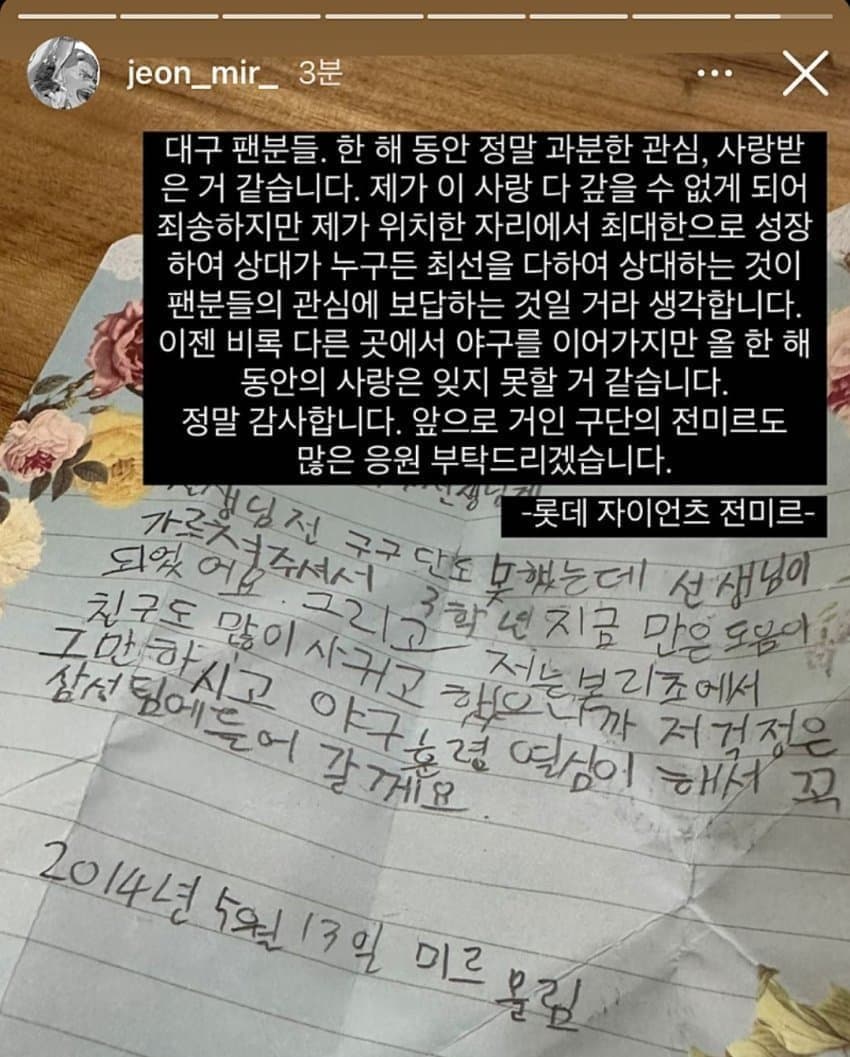 jeon_mir_ 3분
대구 팬분들. 한 해 동안 정말 과분한 관심, 사랑받
은 거 같습니다. 제가 이 사랑 다 갚을 수 없게 되어
죄송하지만 제가 위치한 자리에서 최대한으로 성장
하여 상대가 누구든 최선을 다하여 상대하는 것이
팬분들의 관심에 보답하는 것일 거라 생각합니다.
이젠 비록 다른 곳에서 야구를 이어가지만 올 한 해
동안의 사랑은 잊지 못할 거 같습니다.
정말 감사합니다. 앞으로 거인 구단의 전미르도
많은 응원 부탁드리겠습니다.
-롯데 자이언츠 전미르-
선생님께
선생님 전 구구단도 못했는데 선생님이
가르쳐주셔서 3학년 지금 많은 도움이
되었어요. 그리고 저는 본리초에서
친구도 많이 사귀고 했으니까 저 걱정은
그만하시고 야구 훈령 열심이 해서 꼭
삼성팀에 들어 갈께요.
2014년 5월 13일 미르 올림